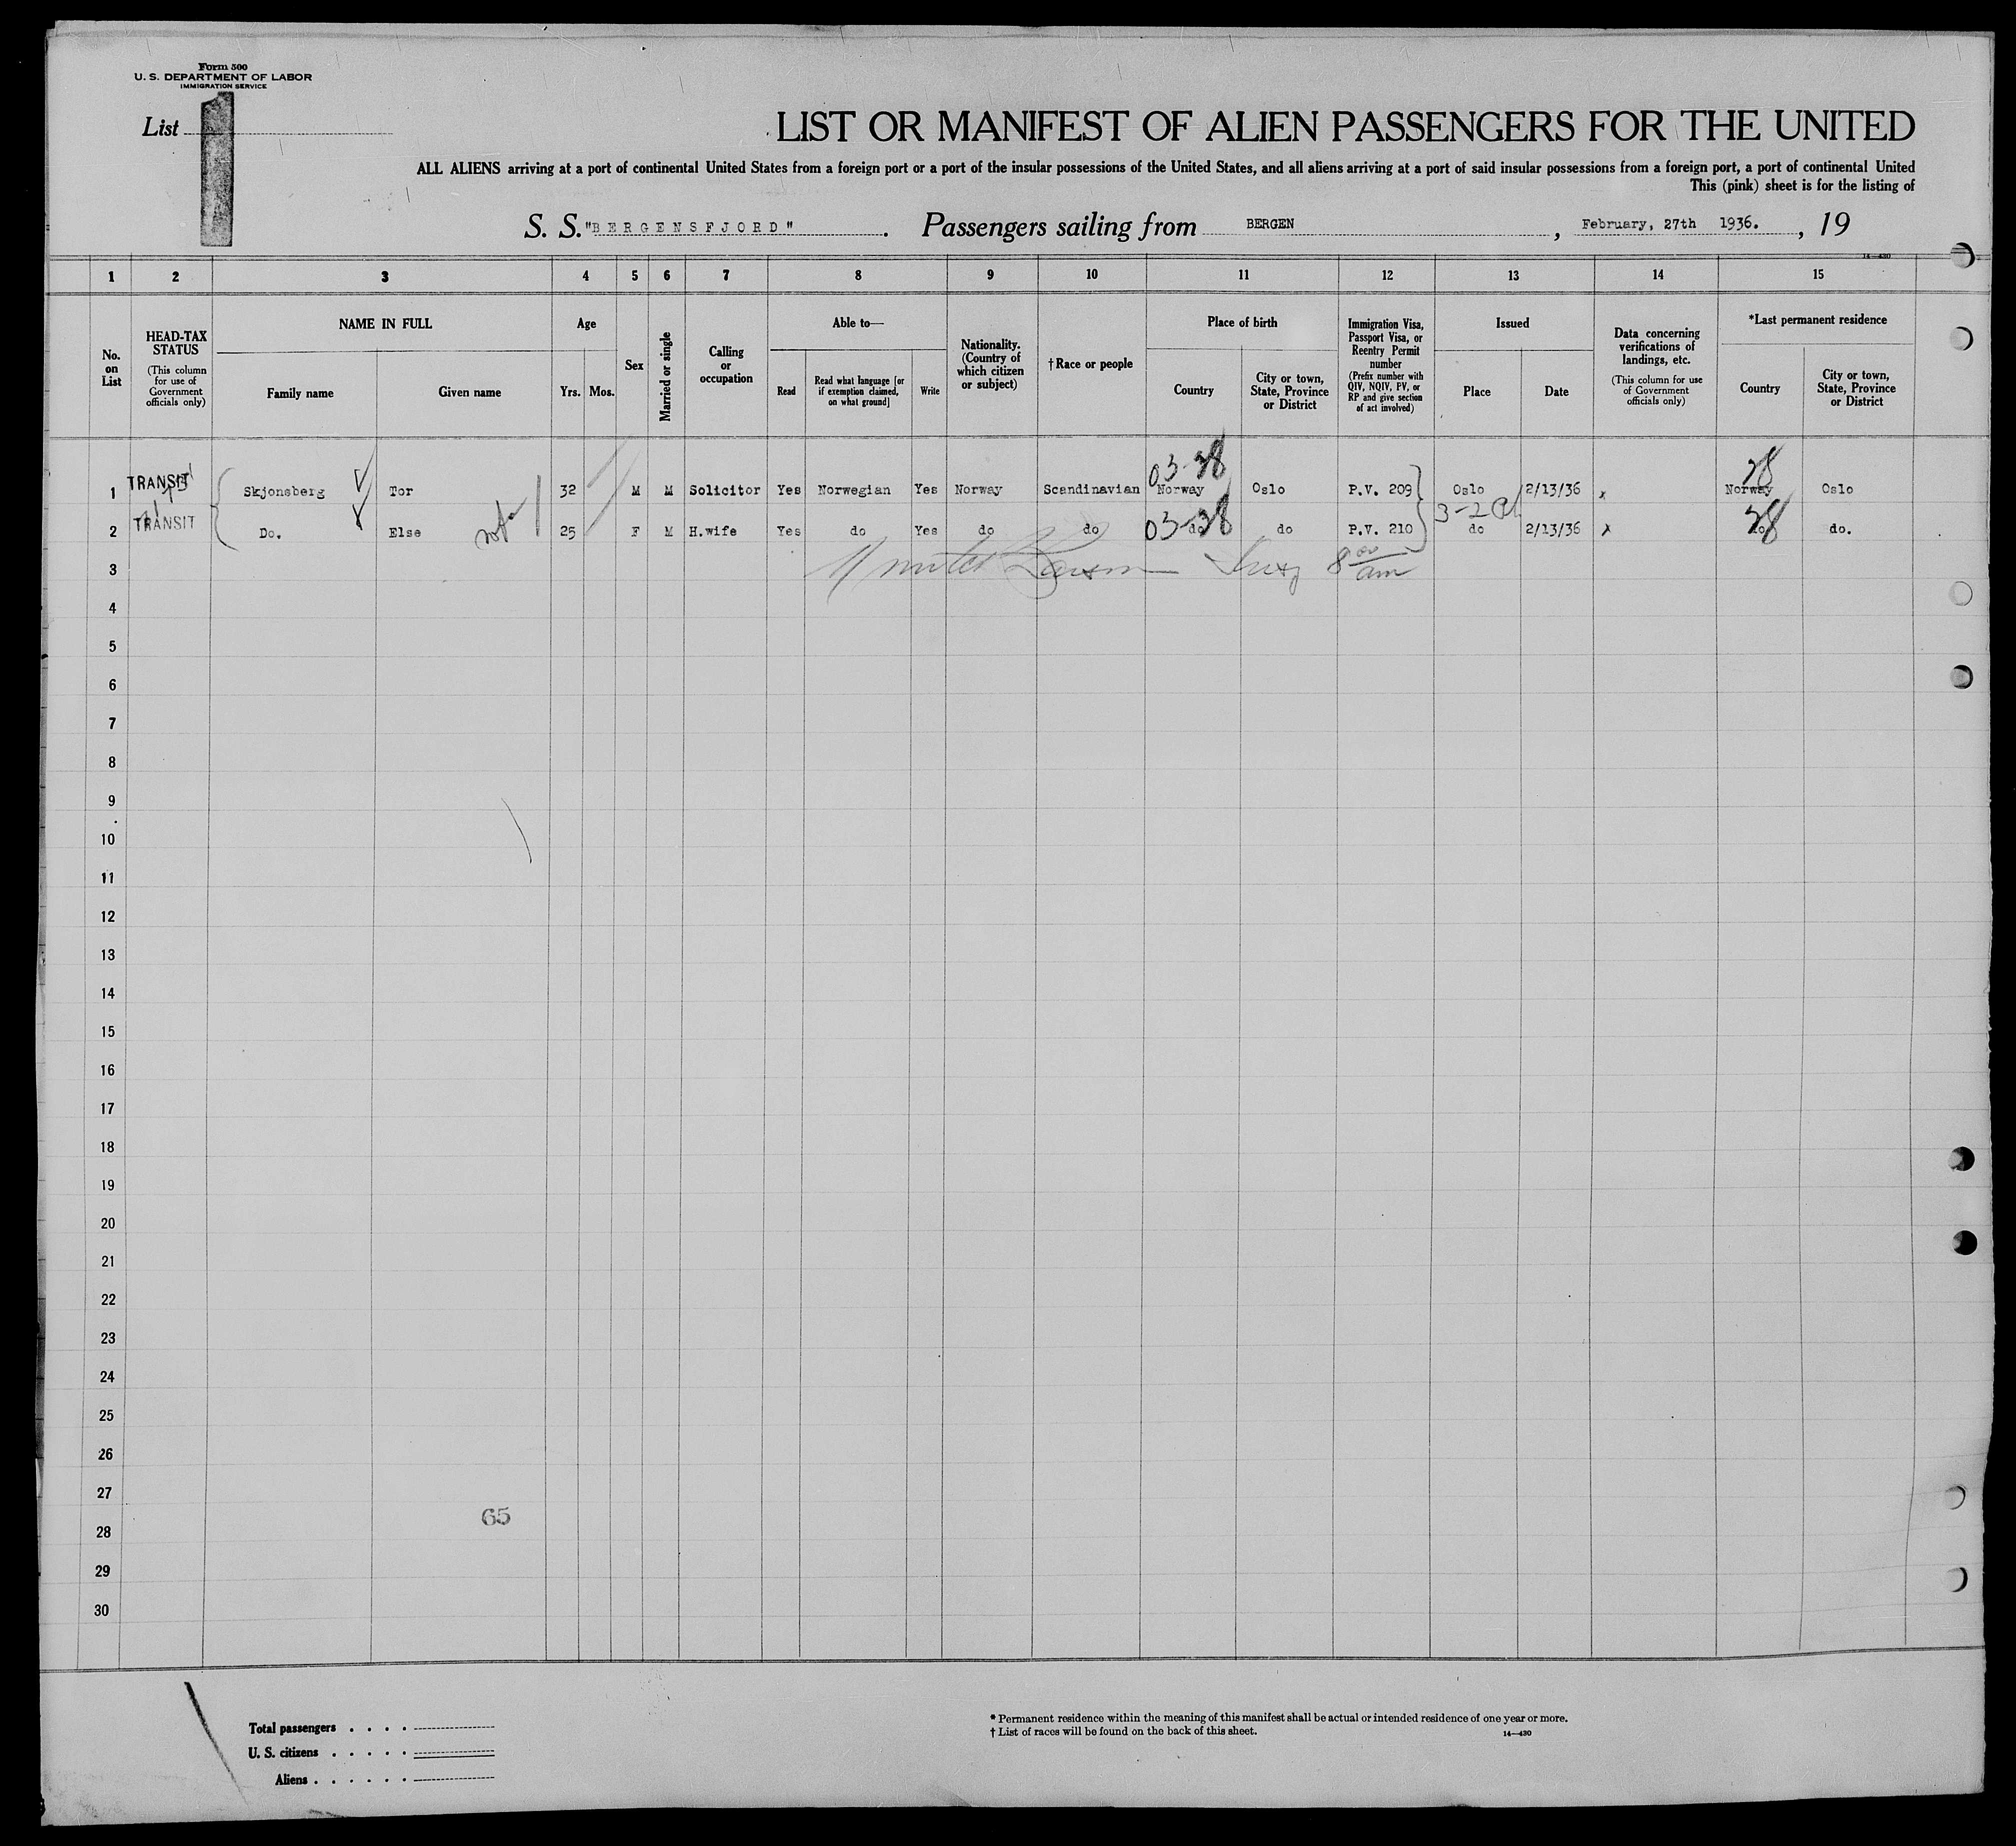 Form 500
U. S. DEPARTMENT OF LABOR
IMMIGRATION SERVICE
List
LIST OR MANIFEST OF ALIEN PASSENGERS FOR THE UNITED
ALL ALIENS arriving at a port of continental United States from a foreign port or a port of the insular possessions of the United States, and all aliens arriving at a port of said insular possessions from a foreign port, a port of continental United
This (pink) sheet is for the listing of
S. S. "BERGENSFJORD". Passengers sailing from BERGEN, February, 27th 1936., 19
14—430
1 2 3 4 5 6 7 8 9 10 11 12 13 14 15
No. on List
HEAD-TAX STATUS
(This column for use of Government officials only)
NAME IN FULL
Family name
Given name
Age
Yrs. Mos.
Sex
Married or single
Calling or occupation
Able to—
Read
Read what language [or if exemption claimed, on what ground]
Write
Nationality. (Country of which citizen or subject)
† Race or people
Place of birth
Country
City or town, State, Province or District
Immigration Visa, Passport Visa, or Reentry Permit number
(Prefix number with QIV, NQIV, PV, or RP and give section of act involved)
Issued
Place
Date
Data concerning verifications of landings, etc.
(This column for use of Government officials only)
*Last permanent residence
Country
City or town, State, Province or District
03-38 38
1 TRANSIT Skjonsberg Tor 32 M M Solicitor Yes Norwegian Yes Norway Scandinavian Norway Oslo P.V. 209 Oslo 2/13/36 x Norway Oslo
3-2
2 TRANSIT Do. Else 25 F M H.wife Yes do Yes do do 03-38 do do P.V. 210 do 2/13/36 x 38 do do.
3 8 00 am
4
5
6
7
8
9
10
11
12
13
14
15
16
17
18
19
20
21
22
23
24
25
26
27
65
28
29
30
Total passengers . . . .
U. S. citizens . . . . .
Aliens . . . . . .
* Permanent residence within the meaning of this manifest shall be actual or intended residence of one year or more.
† List of races will be found on the back of this sheet.
14—430